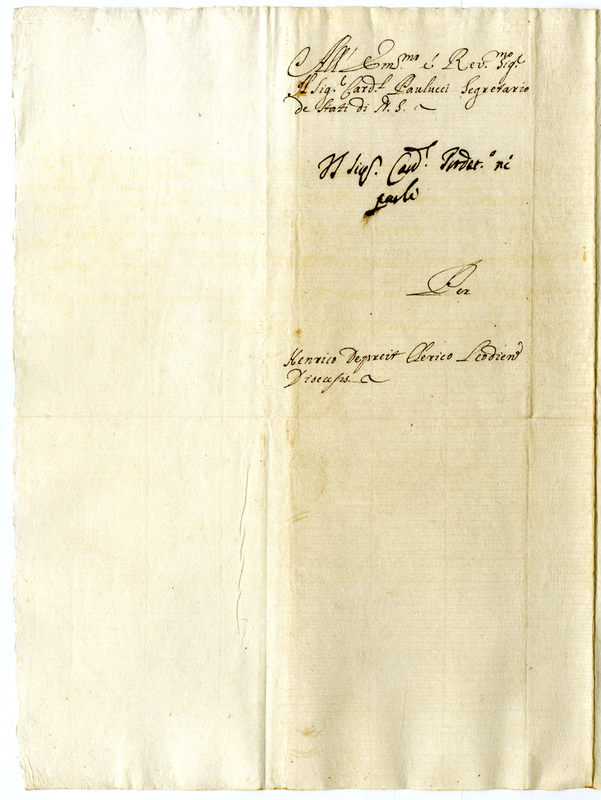 All' Em.mo é Rev.mo Sig.e
Il Sig.e Card.l Paulucci Segretario
de Stati di N. S.
Il Sig.r Card.l ni
parli
Per
Henrico Depreit Clerico Leodien
Diocesis